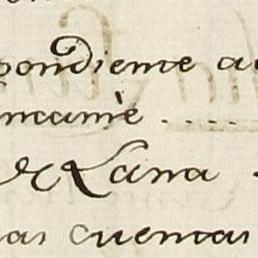 pondiente a
ncanè ....
de Lana
as cuentas